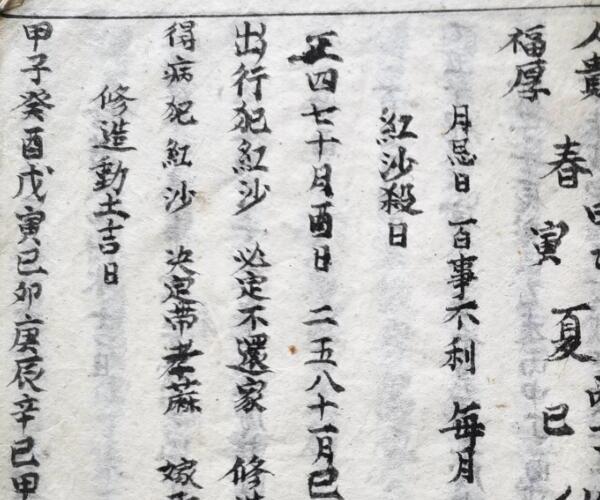 人貴
春 寅 夏 巳
福厚
月忌日 百事不利 每月
紅沙殺日
正四七十月酉日 二五八十一月巳
出行犯紅沙 必定不還家 修
得病犯紅沙 決定帶孝蔴 嫁
修造動土吉日
甲子癸酉戊寅己卯庚辰辛巳甲